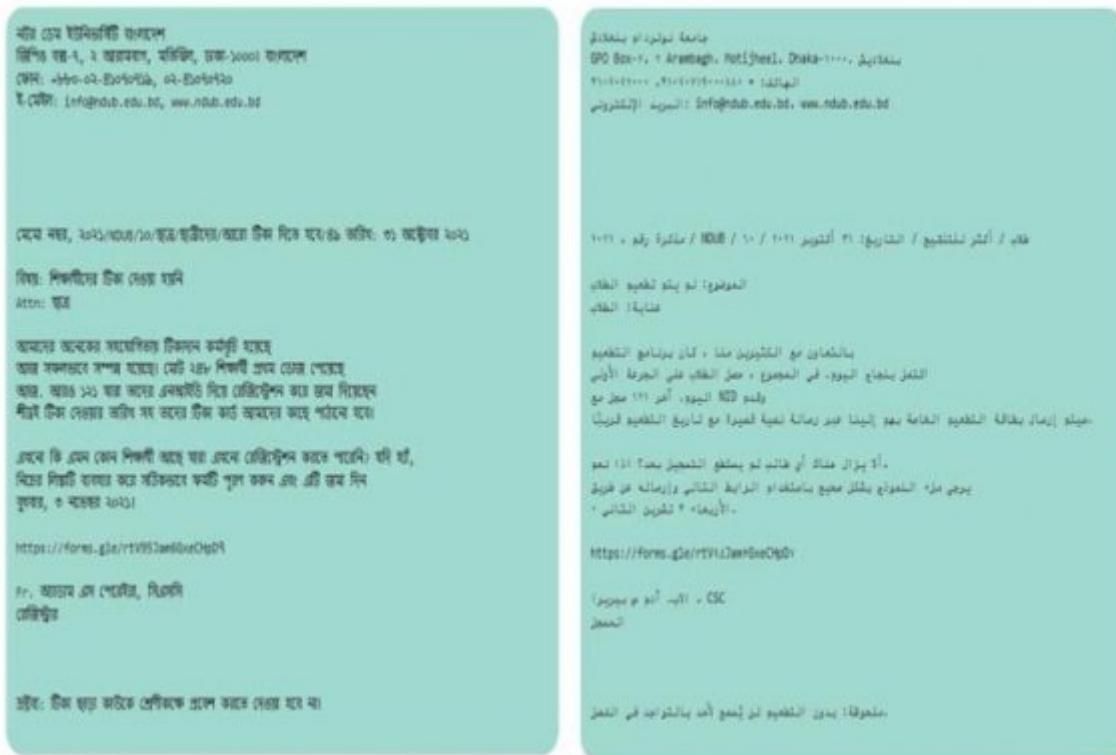 নটর ডেম ইউনিভার্সিটি বাংলাদেশ
জিপিও বক্স-৭, ২ আরামবাগ, মতিঝিল, ঢাকা-১০০০। বাংলাদেশ
ফোন:
ই-মেইল: info@ndub.edu.bd, www.ndub.edu.bd
মেমো নম্বর, ২০২১/NDUB/১০/ছাত্র/ছাত্রীদের/আরো টিকা দিতে হবে/৪৯ তারিখ: ৩১ অক্টোবর ২০২১
বিষয়: শিক্ষার্থীদের টিকা দেওয়া হয়নি
Attn: ছাত্র
আমাদের অনেকের সহযোগিতায় টিকাদান কর্মসূচি হয়েছে
আজ সফলভাবে সম্পন্ন হয়েছে। মোট ২৪৮ শিক্ষার্থী প্রথম ডোজ পেয়েছে
আজ. আরও ১২১ যারা তাদের এনআইডি দিয়ে রেজিস্ট্রেশন করে জমা দিয়েছেন
শীঘ্রই টিকা দেওয়ার তারিখ সহ তাদের টিকা কার্ড আমাদের কাছে পাঠানো হবে।
এখনো কি এমন কোন শিক্ষার্থী আছে যারা এখনো রেজিস্ট্রেশন করতে পারেনি? যদি হ্যাঁ,
নিচের লিঙ্কটি ব্যবহার করে সঠিকভাবে ফর্মটি পূরণ করুন এবং এটি জমা দিন
বুধবার, ৩ নভেম্বর ২০২১।
Fr. অ্যাডাম এস পেরেইরা, সিএসসি
রেজিস্ট্রার
দ্রষ্টব্য: টিকা ছাড়া কাউকে শ্রেণীকক্ষে প্রবেশ করতে দেওয়া হবে না।
جامعة نوتردام بنغلاديش
GPO Box-٢، ٢ Arambagh، Motijheel، Dhaka-١٠٠٠، بنغلاديش
الهاتف:
البريد الإلكتروني: info@ndub.edu.bd، www.ndub.edu.bd
مذكرة رقم ، ٢٠٢١ / NDUB / ١٠ / طلاب / أكثر / التاريخ: ٣١ أكتوبر ٢٠٢١
الموضوع: لم يتم تطعيم الطلاب
عناية: الطلاب
بالتعاون مع الكثيرين منا ، كان برنامج التطعيم
بنجاح اليوم. في المجموع ، حصل الطلاب على الجرعة الأولى
اليوم. آخر ١٢١ مع NID وقدم
إرسال بطاقة التطعيم الخاصة بهم إلينا عبر رسالة نصية قصيرة مع تاريخ التطعيم قريبًا.
ألا يزال هناك أي طالب لم يستطع التسجيل بعد؟ إذا نعم،
يرجى ملء النموذج بشكل صحيح باستخدام الرابط التالي وإرساله عن طريق
الأربعاء ٣ تشرين الثاني
الأب آدم بيريرا ، CSC
المسجل
ملحوظة: بدون التطعيم لن يُسمح لأحد بالتواجد في الفصل.